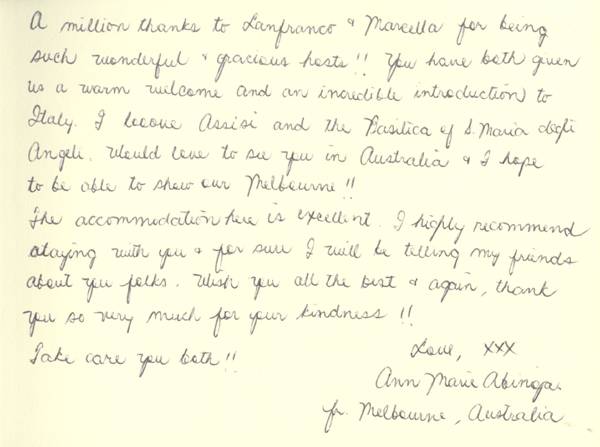 A million thanks to Lanfranco & Marcella for being
such wonderful & gracious hosts!! You have both given
us a warm welcome and an incredible introduction to
Italy. I looove Assisi and the Basilica of S. Maria degli
Angeli. Would love to see you in Australia & I hope
to be able to show our Melbourne!!
The accommodation here is excellent. I highly recommend
staying with you & for sure I will be telling my friends
about you folks. Wish you all the best & again, thank
you so very much for your kindness!!
Take care you both!!
Love, xxx
Ann Marie
fr. Melbourne, Australia